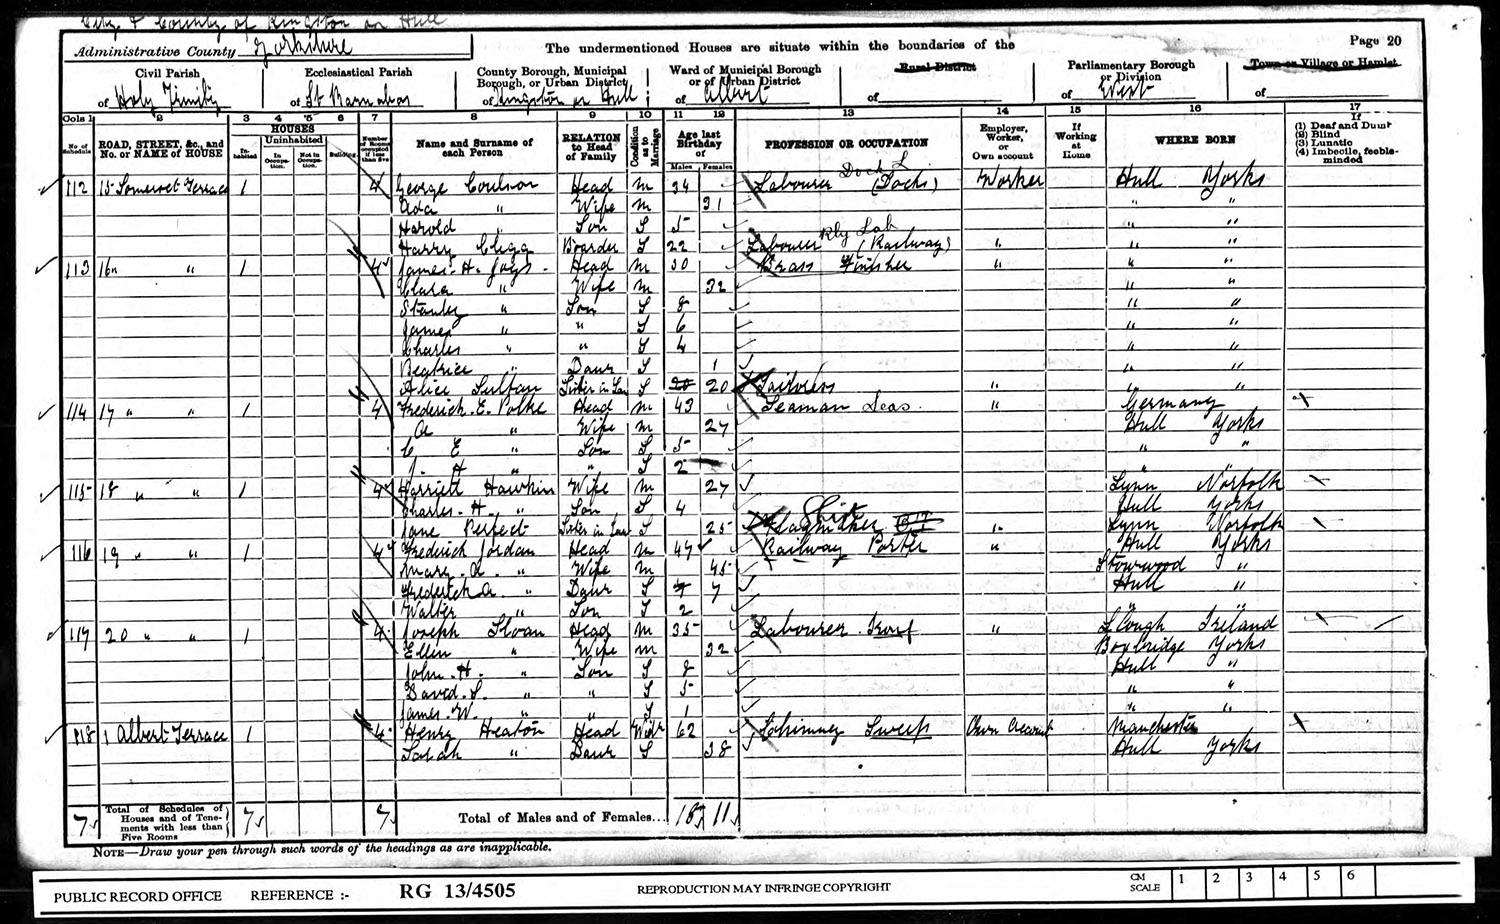 City & County of Kingston on Hull
Administrative County Yorkshire
The undermentioned Houses are situate within the boundaries of the
Page 20
Civil Parish
of Holy Trinity
Ecclesiastical Parish
of St Barnabas
County Borough, Municipal
Borough, or Urban District
of Kingston on Hull
Ward of Municipal Borough
or of Urban District
of Albert
Rural District
of
Parliamentary Borough
or Division
of West
Town or Village or Hamlet
of
Cols 1 2 3 4 5 6 7 8 9 10 11 12 13 14 15 16 17
No. of Schedule
ROAD, STREET, &c., and No. or NAME of HOUSE
HOUSES
Inhabited
Uninhabited
In Occupation.
Not in Occupation.
Building.
Number of Rooms occupied if less than five
Name and Surname of each Person
RELATION to Head of Family
Condition as to Marriage
Age last Birthday of
Males Females
PROFESSION OR OCCUPATION
Employer, Worker, or Own account
If Working at Home
WHERE BORN
If
(1) Deaf and Dumb
(2) Blind
(3) Lunatic
(4) Imbecile, feeble-minded
Dock L
112 15 Somerset Terrace 1 4 George Coulson Head M 34 Labourer (Dock) Worker Hull Yorks
Ada " Wife M 31 " "
Harold " Son S 5 " "
Rly Lab
Harry Clegg Boarder S 22 Labourer (Railway) " " "
113 16 " " 1 4 James H. Jays Head M 30 Brass Finisher " " "
Clara " Wife M 32 " "
Stanley " Son S 8 " "
James " " S 6 " "
Charles " " S 4 " "
Beatrice " Daur S 1 " "
Alice Sultan Sister in Law S 20 20 Tailoress " " "
114 17 " " 1 4 Frederick E. Polke Head M 43 Seaman Seas " Germany
A " Wife M 27 Hull Yorks
C E " Son S 5 " "
J. H " " S 2
115 18 " " 1 4 Harriett Hawkins Wife M 27 Lynn Norfolk
Charles H. " Son S 4 Hull Yorks
Jane Perfect Sister in Law S 25 Flagmaker " Lynn Norfolk
116 19 " " 1 4 Frederick Jordan Head M 47 Railway Porter " Hull Yorks
Mary A. " Wife M 45 "
Frederick A. " Daur S 7 7 Hull "
Walter " Son S 2 " "
117 20 " " 1 4 Joseph Sloan Head M 35 Labourer " Ireland
Ellin " Wife M 32 Yorks
John H. " Son S 8 Hull "
David S. " " S 5 " "
James W. " " S 1 " "
118 1 Albert Terrace 1 4 Henry Heaton Head Widr 62 Chimney Sweep Own Account Manchester
Sarah " Daur S 38 Hull Yorks
7 Total of Schedules of Houses and of Tenements with less than Five Rooms 7 7 Total of Males and of Females... 18 11
NOTE—Draw your pen through such words of the headings as are inapplicable.
PUBLIC RECORD OFFICE REFERENCE :- RG 13/4505 REPRODUCTION MAY INFRINGE COPYRIGHT CM SCALE 1 2 3 4 5 6